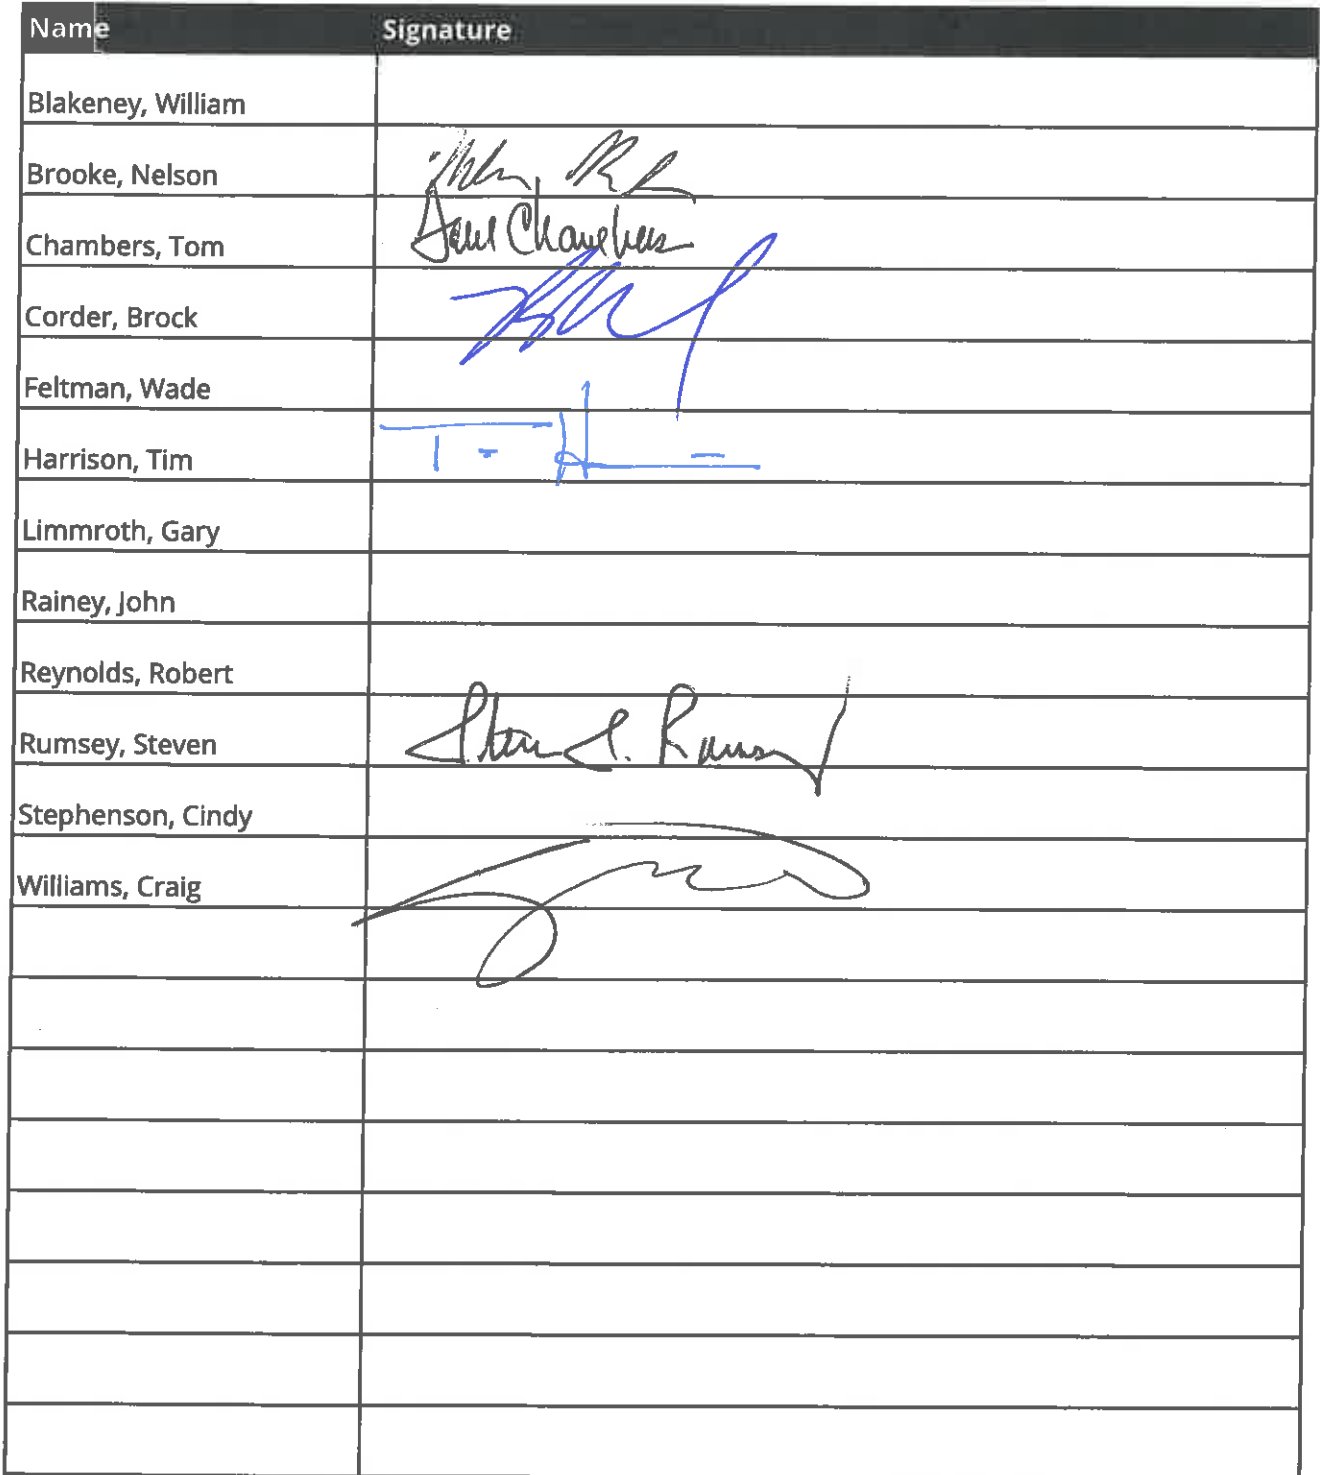 Name Signature
Blakeney, William
Brooke, Nelson
Chambers, Tom Chambers
Corder, Brock
Feltman, Wade
Harrison, Tim
Limmroth, Gary
Rainey, John
Reynolds, Robert
Rumsey, Steven Steven L. Rumsey
Stephenson, Cindy
Williams, Craig